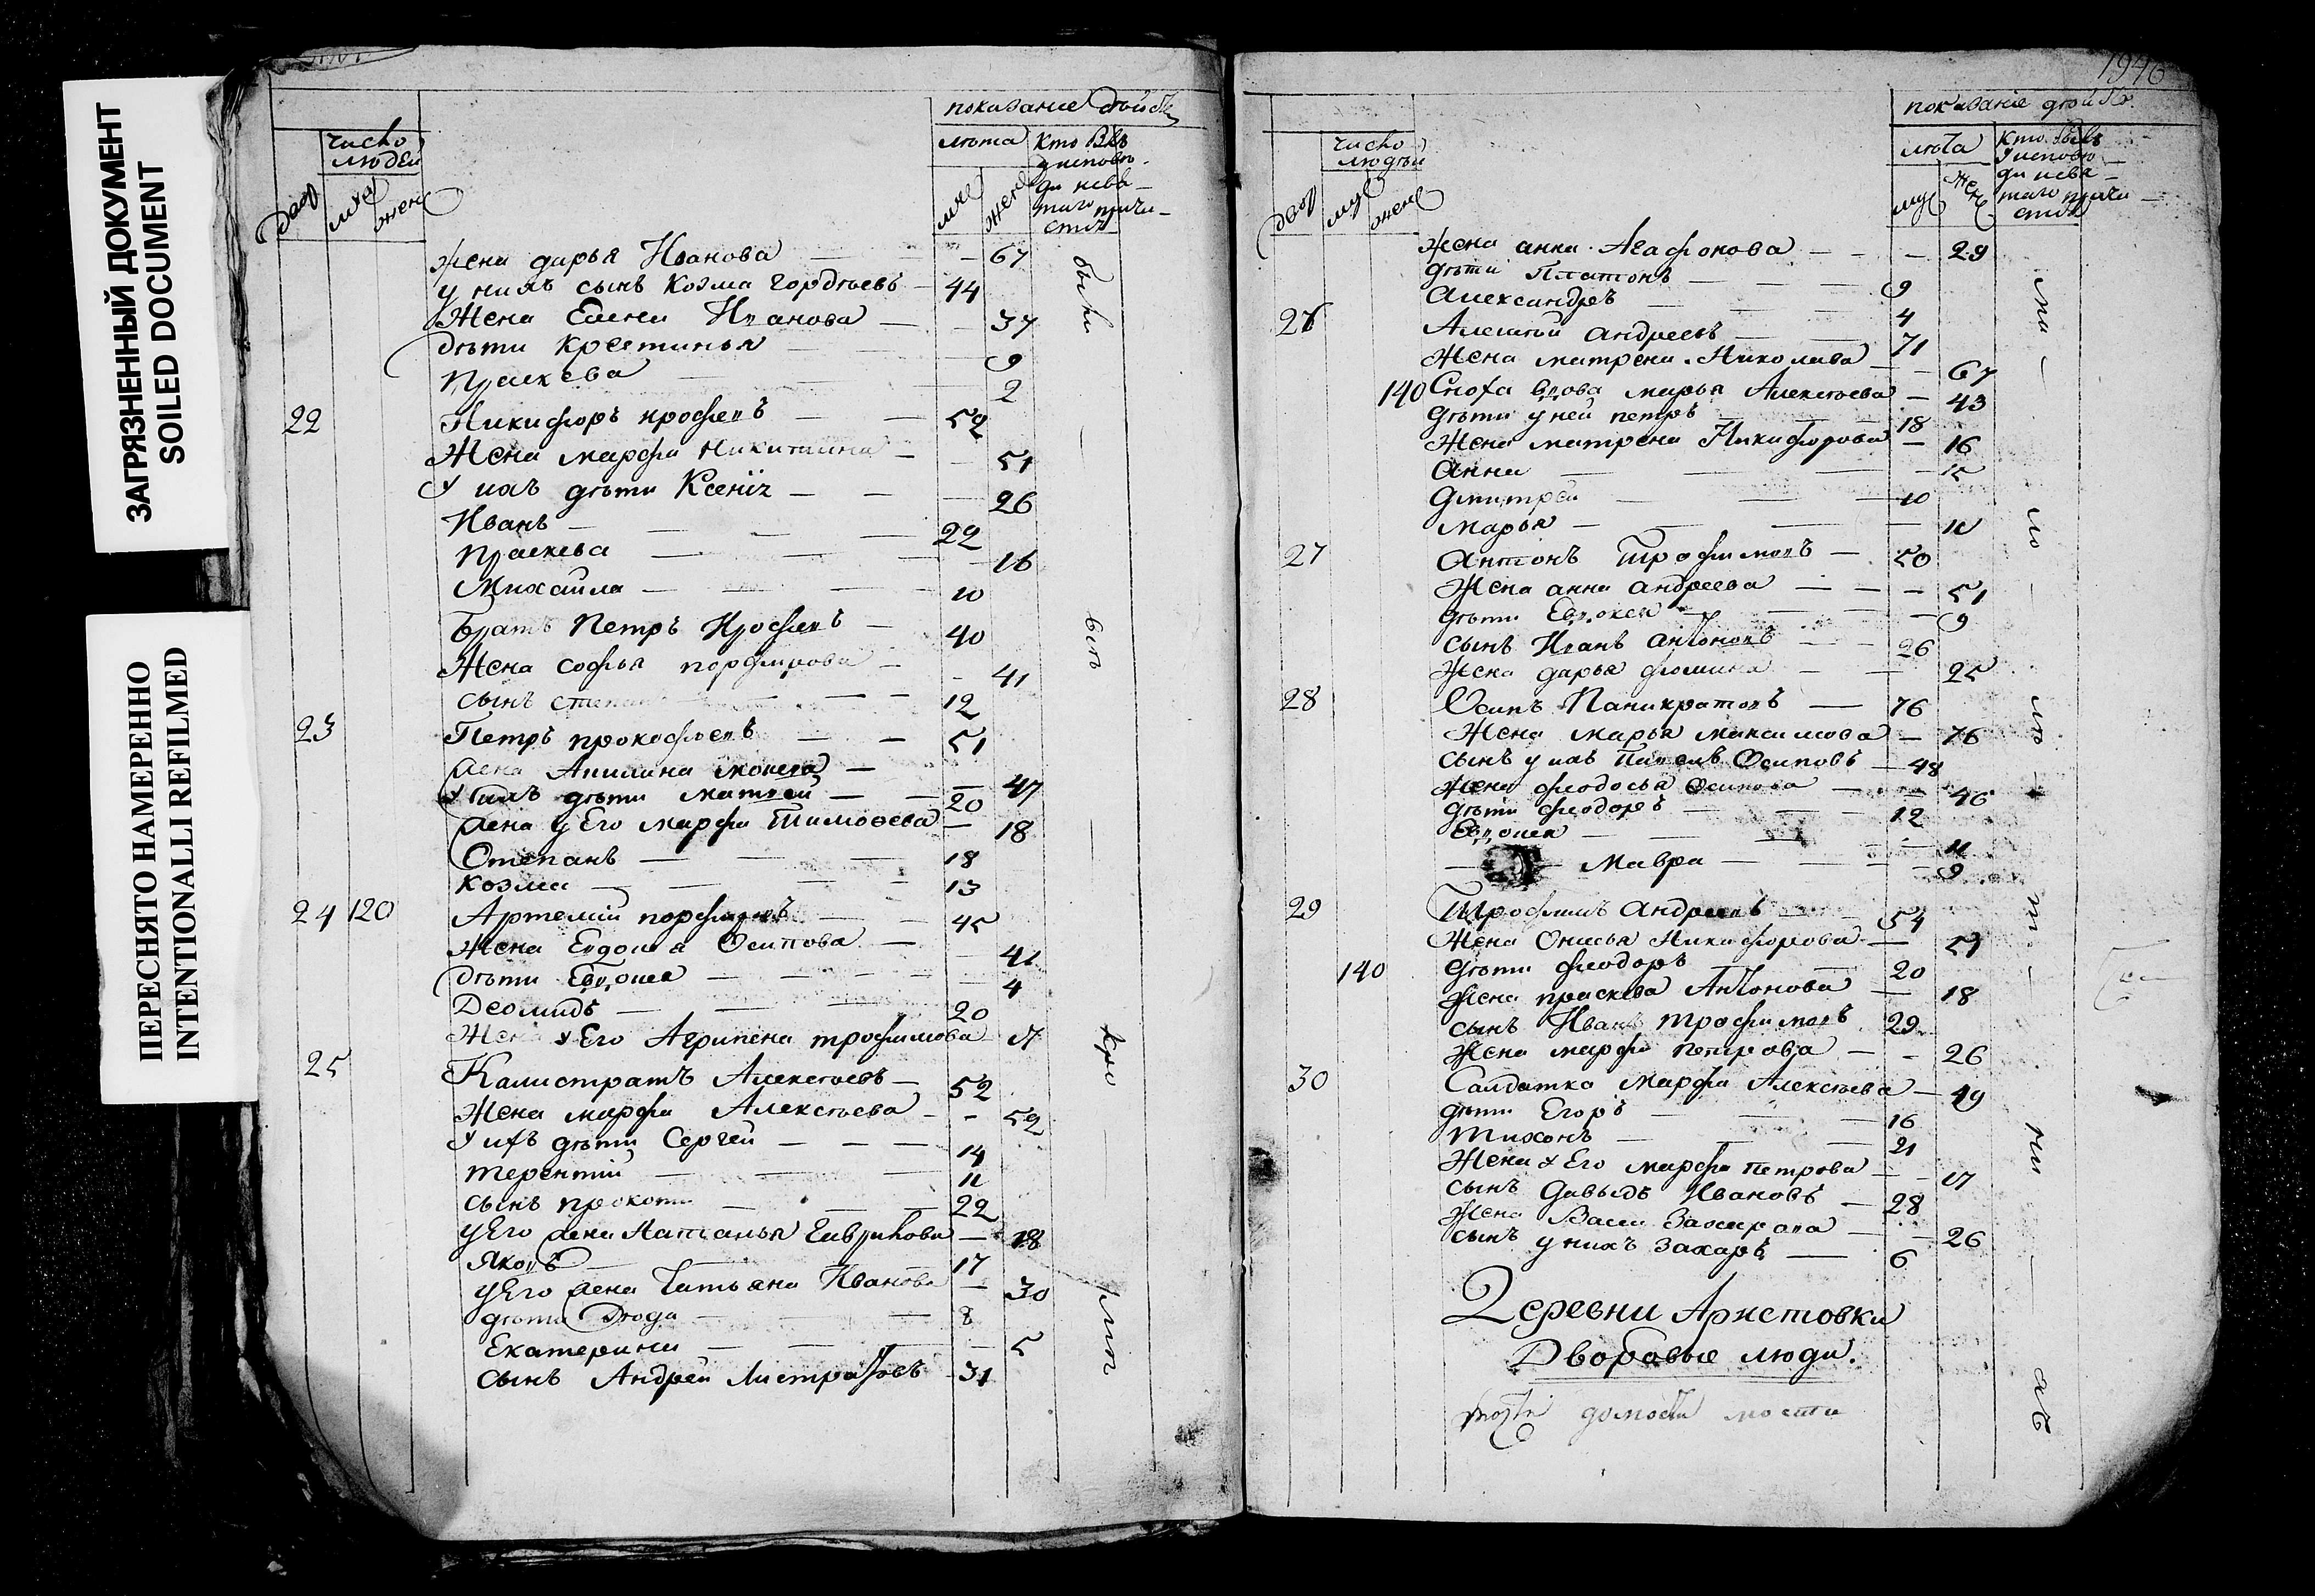 ЗАГРЯЗНЕННЫЙ ДОКУМЕНТ
SOILED DOCUMENT
ПЕРЕСНЯТО НАМЕРЕННО
INTENTIONALLI REFILMED
число людей
лѣта
жена дарья Иванова 67
у нихъ сынъ Козма гордѣевъ 44
Жена Елена Иванова 37
дѣти крестинья 9
Праскева 2
22 Никифоръ ерофеевъ 52
Жена марфа никитина 51
У ихъ дѣти Ксенiя 26
Иванъ 22
Праскева 16
Михаила 10
братъ Петръ Ерофеевъ 40
Жена софья порфирова 41
сынъ степанъ 12
23 Петръ прокофьевъ 51
жена Акилина 47
дѣти матвей 20
жена у Его марфа Тимоѳеева 18
Степанъ 18
козма 13
24 120 Артемiй порфировъ 45
Жена Евдокия Осипова 41
дѣти Евдокия 4
Деомидъ 20
Жена у Его Агрипена трофимова 17
25 Калистратъ Алексѣевъ 52
Жена марфа Алексѣева 52
У ихъ дѣти Сергей 14
терентiй 11
сынъ прокопи 22
у Его жена Наталья Гаврилова 18
Яковъ 17
у Его жена Татьяна Иванова 30
дѣти 8
Екатерина 5
сынъ Андрей Листратовъ 31
1946
число людѣй
лѣта
жена анна Агафонова 29
дѣти Платонъ 9
Александръ 4
26 Алексѣй андреевъ 71
Жена матрена Николаева 67
140 Сноха вдова марья Алексѣева 43
дѣти у ней петръ 18
Жена матрена Никифорова 16
анна 15
дмитрей 10
марья 11
27 антонъ трофимовъ 50
Жена анна андреева 51
дѣти Евдокея 9
сынъ Иванъ антоновъ 26
жена дарья фомина 25
28 Осипъ Панкратовъ 76
Жена марья максимова 76
сынъ у ихъ Павелъ Осиповъ 48
жена феодосья Осипова 46
дѣти феодоръ 12
Евдокея 11
Мавра 9
29 Трофимъ андреевъ 54
Жена Онисья Никифорова 51
140 дѣти феодоръ 20
жена праскева Антонова 18
сынъ Иванъ трофимовъ 29
жена марфа петрова 26
30 Салдатка марфа Алексѣева 49
дѣти Егоръ 16
тихонъ 21
Жена у Его марфа петрова 17
сынъ давыдъ Ивановъ 28
жена Васса Захарова 26
сынъ у нихъ Захаръ 6
Деревни Аристовки
Дворовые люди.